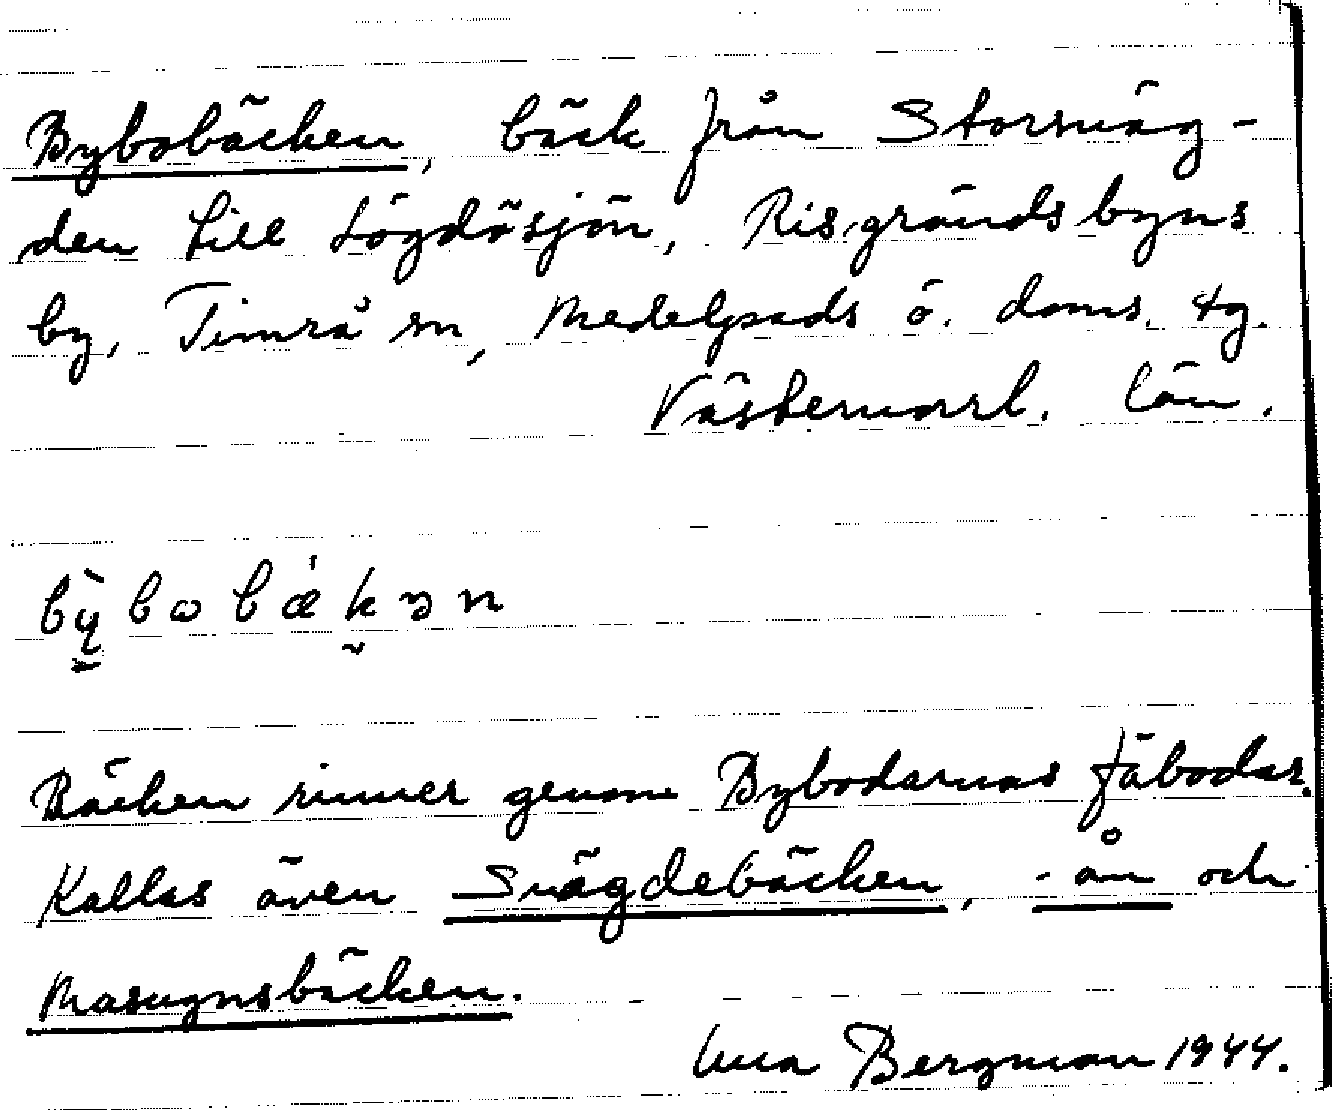 Bybobäcken, bäck från Storsväg-
den till Lögdösjön, Risgrändsbyns
by, Timrå sn, Medelpads ö. doms. tg.
Västernorrl. län.
bỳbobækən
Bäcken rinner genom Bybodarnas fäbodar.
Kallas även Svägdebäcken, -ån och
Masugnsbäcken.
Bergman 1944.